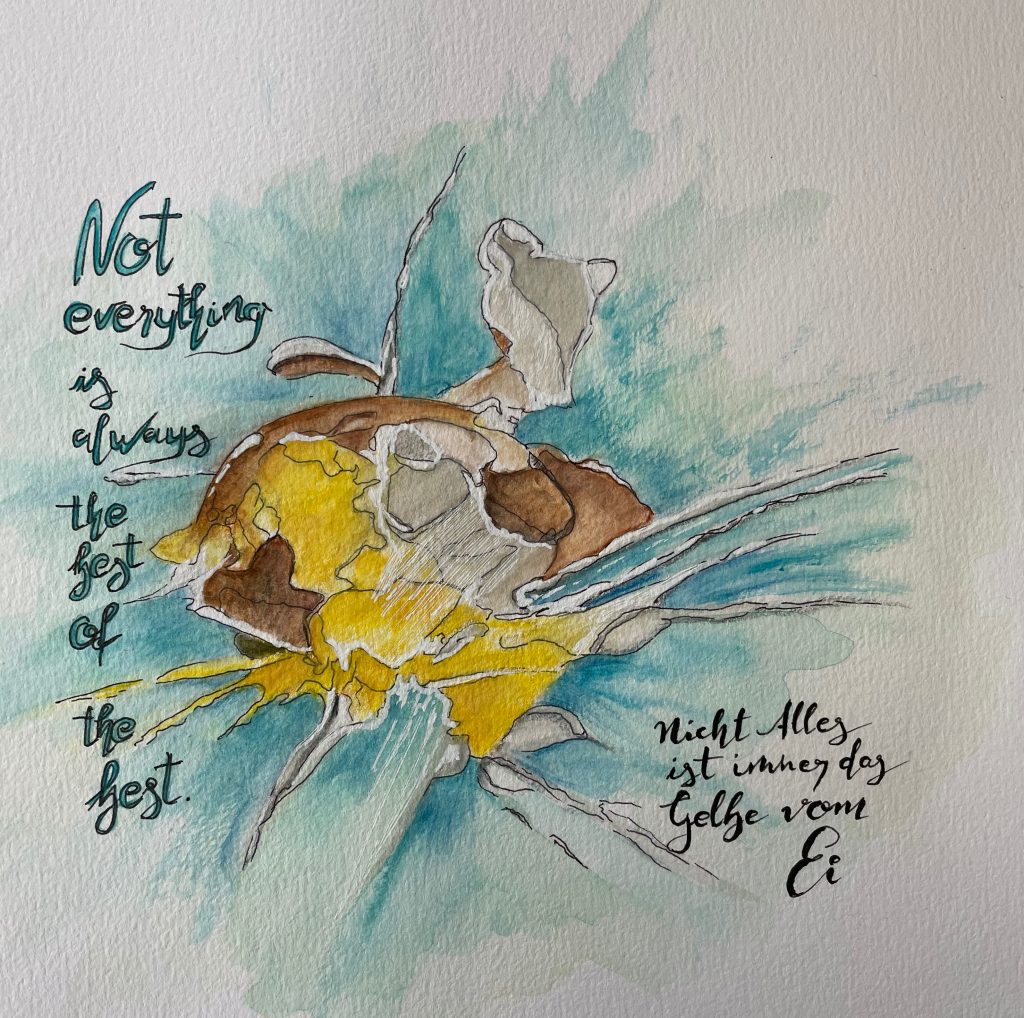 Not
everything
is
always
the
best
of
the
best.
Nicht Alles
ist immer das
Gelbe vom
Ei